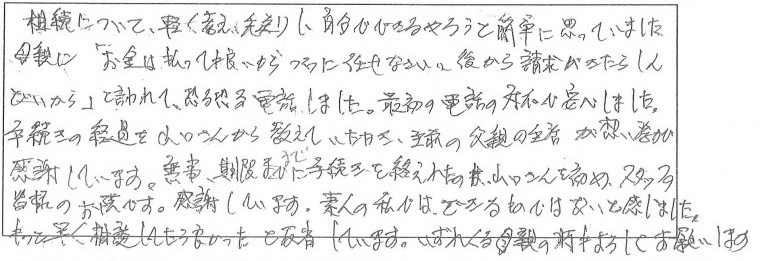 相続について、軽く考え、先走りし、自分でできるやろうと簡単に思っていました
母親に「お金は払って良いからプロに任せなさい。後から請求がきたらしん
どいから」と言われて、恐る恐る電話しました。最初の電話の対応で安心しました。
手続きの経過を山口さんから教えていただき、生前の父親の生活が思い巻か
感謝しています。無事、期限までに手続きを終えれたのは、山口さんを初め、スタッフの
皆様のお陰です。感謝しています。素人の私では、できるものではないと感じました。
もっと早く相談したら良かったと反省しています。いずれくる母親の時もよろしくお願いします